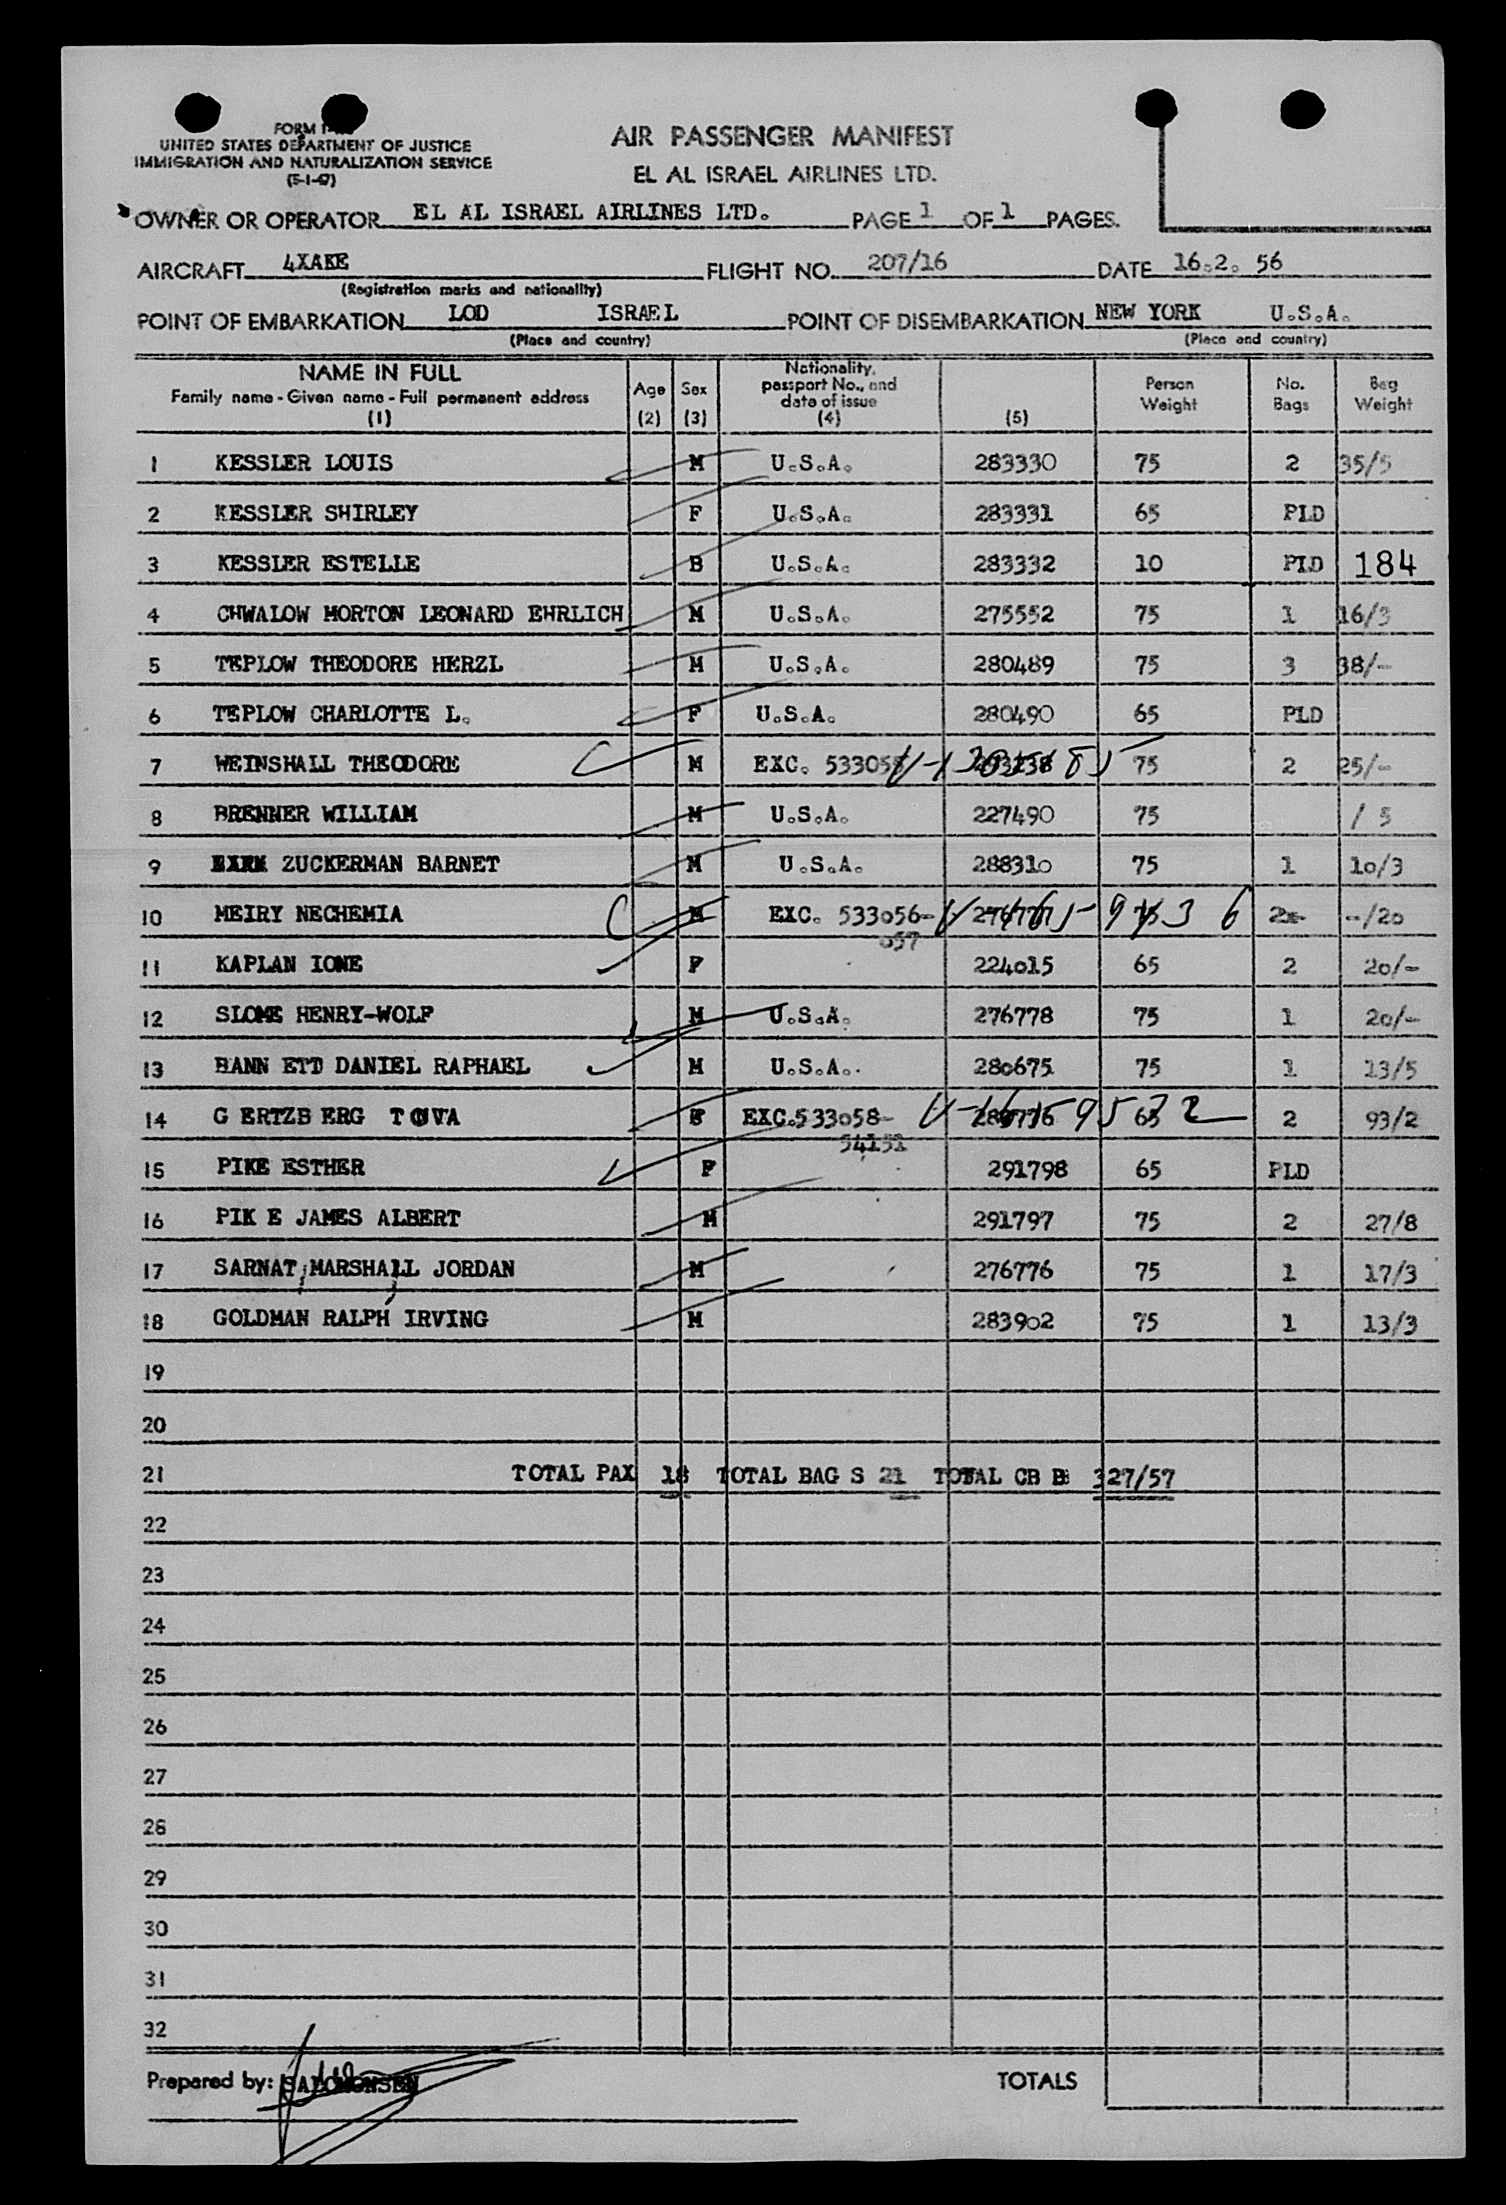 FORM I-
UNITED STATES DEPARTMENT OF JUSTICE
IMMIGRATION AND NATURALIZATION SERVICE
(5-1-47)
AIR PASSENGER MANIFEST
EL AL ISRAEL AIRLINES LTD.
OWNER OR OPERATOR EL AL ISRAEL AIRLINES LTD. PAGE 1 OF 1 PAGES.
AIRCRAFT 4XAKE FLIGHT NO. 207/16 DATE 16.2. 56
(Registration marks and nationality)
POINT OF EMBARKATION LOD ISRAEL POINT OF DISEMBARKATION NEW YORK U.S.A.
(Place and country) (Place and country)
NAME IN FULL Family name - Given name - Full permanent address (1) Age (2) Sex (3) Nationality, passport No., and date of issue (4) (5) Person Weight No. Bags Bag Weight
1 KESSLER LOUIS M U.S.A. 283330 75 2 35/5
2 KESSLER SHIRLEY F U.S.A. 283331 65 PLD
3 KESSLER ESTELLE B U.S.A. 283332 10 PLD 184
4 CHWALOW MORTON LEONARD EHRLICH M U.S.A. 275552 75 1 16/3
5 TEPLOW THEODORE HERZL M U.S.A. 280489 75 3 38/-
6 TEPLOW CHARLOTTE L. F U.S.A. 280490 65 PLD
7 WEINSHALL THEODORE M EXC. 75 2 25/-
8 BRENNER WILLIAM M U.S.A. 227490 75 / 5
9 ZUCKERMAN BARNET M U.S.A. 288310 75 1 10/3
10 MEIRY NECHEMIA M EXC. 533056- --/20
057
11 KAPLAN IONE F 224015 65 2 20/-
12 SLOME HENRY-WOLF M U.S.A. 276778 75 1 20/-
13 BANN ETT DANIEL RAPHAEL M U.S.A. 280675 75 1 13/5
14 G ERTZB ERG TOVA EXC.533058- 65 2 93/2
54151
15 PIKE ESTHER F 291798 65 PLD
16 PIK E JAMES ALBERT M 291797 75 2 27/8
17 SARNAT MARSHALL JORDAN M 276776 75 1 17/3
18 GOLDMAN RALPH IRVING M 283902 75 1 13/3
19
20
21 TOTAL PAX 18 TOTAL BAG S 21 TOTAL 327/57
22
23
24
25
26
27
28
29
30
31
32
Prepared by: SALOMONSEN TOTALS